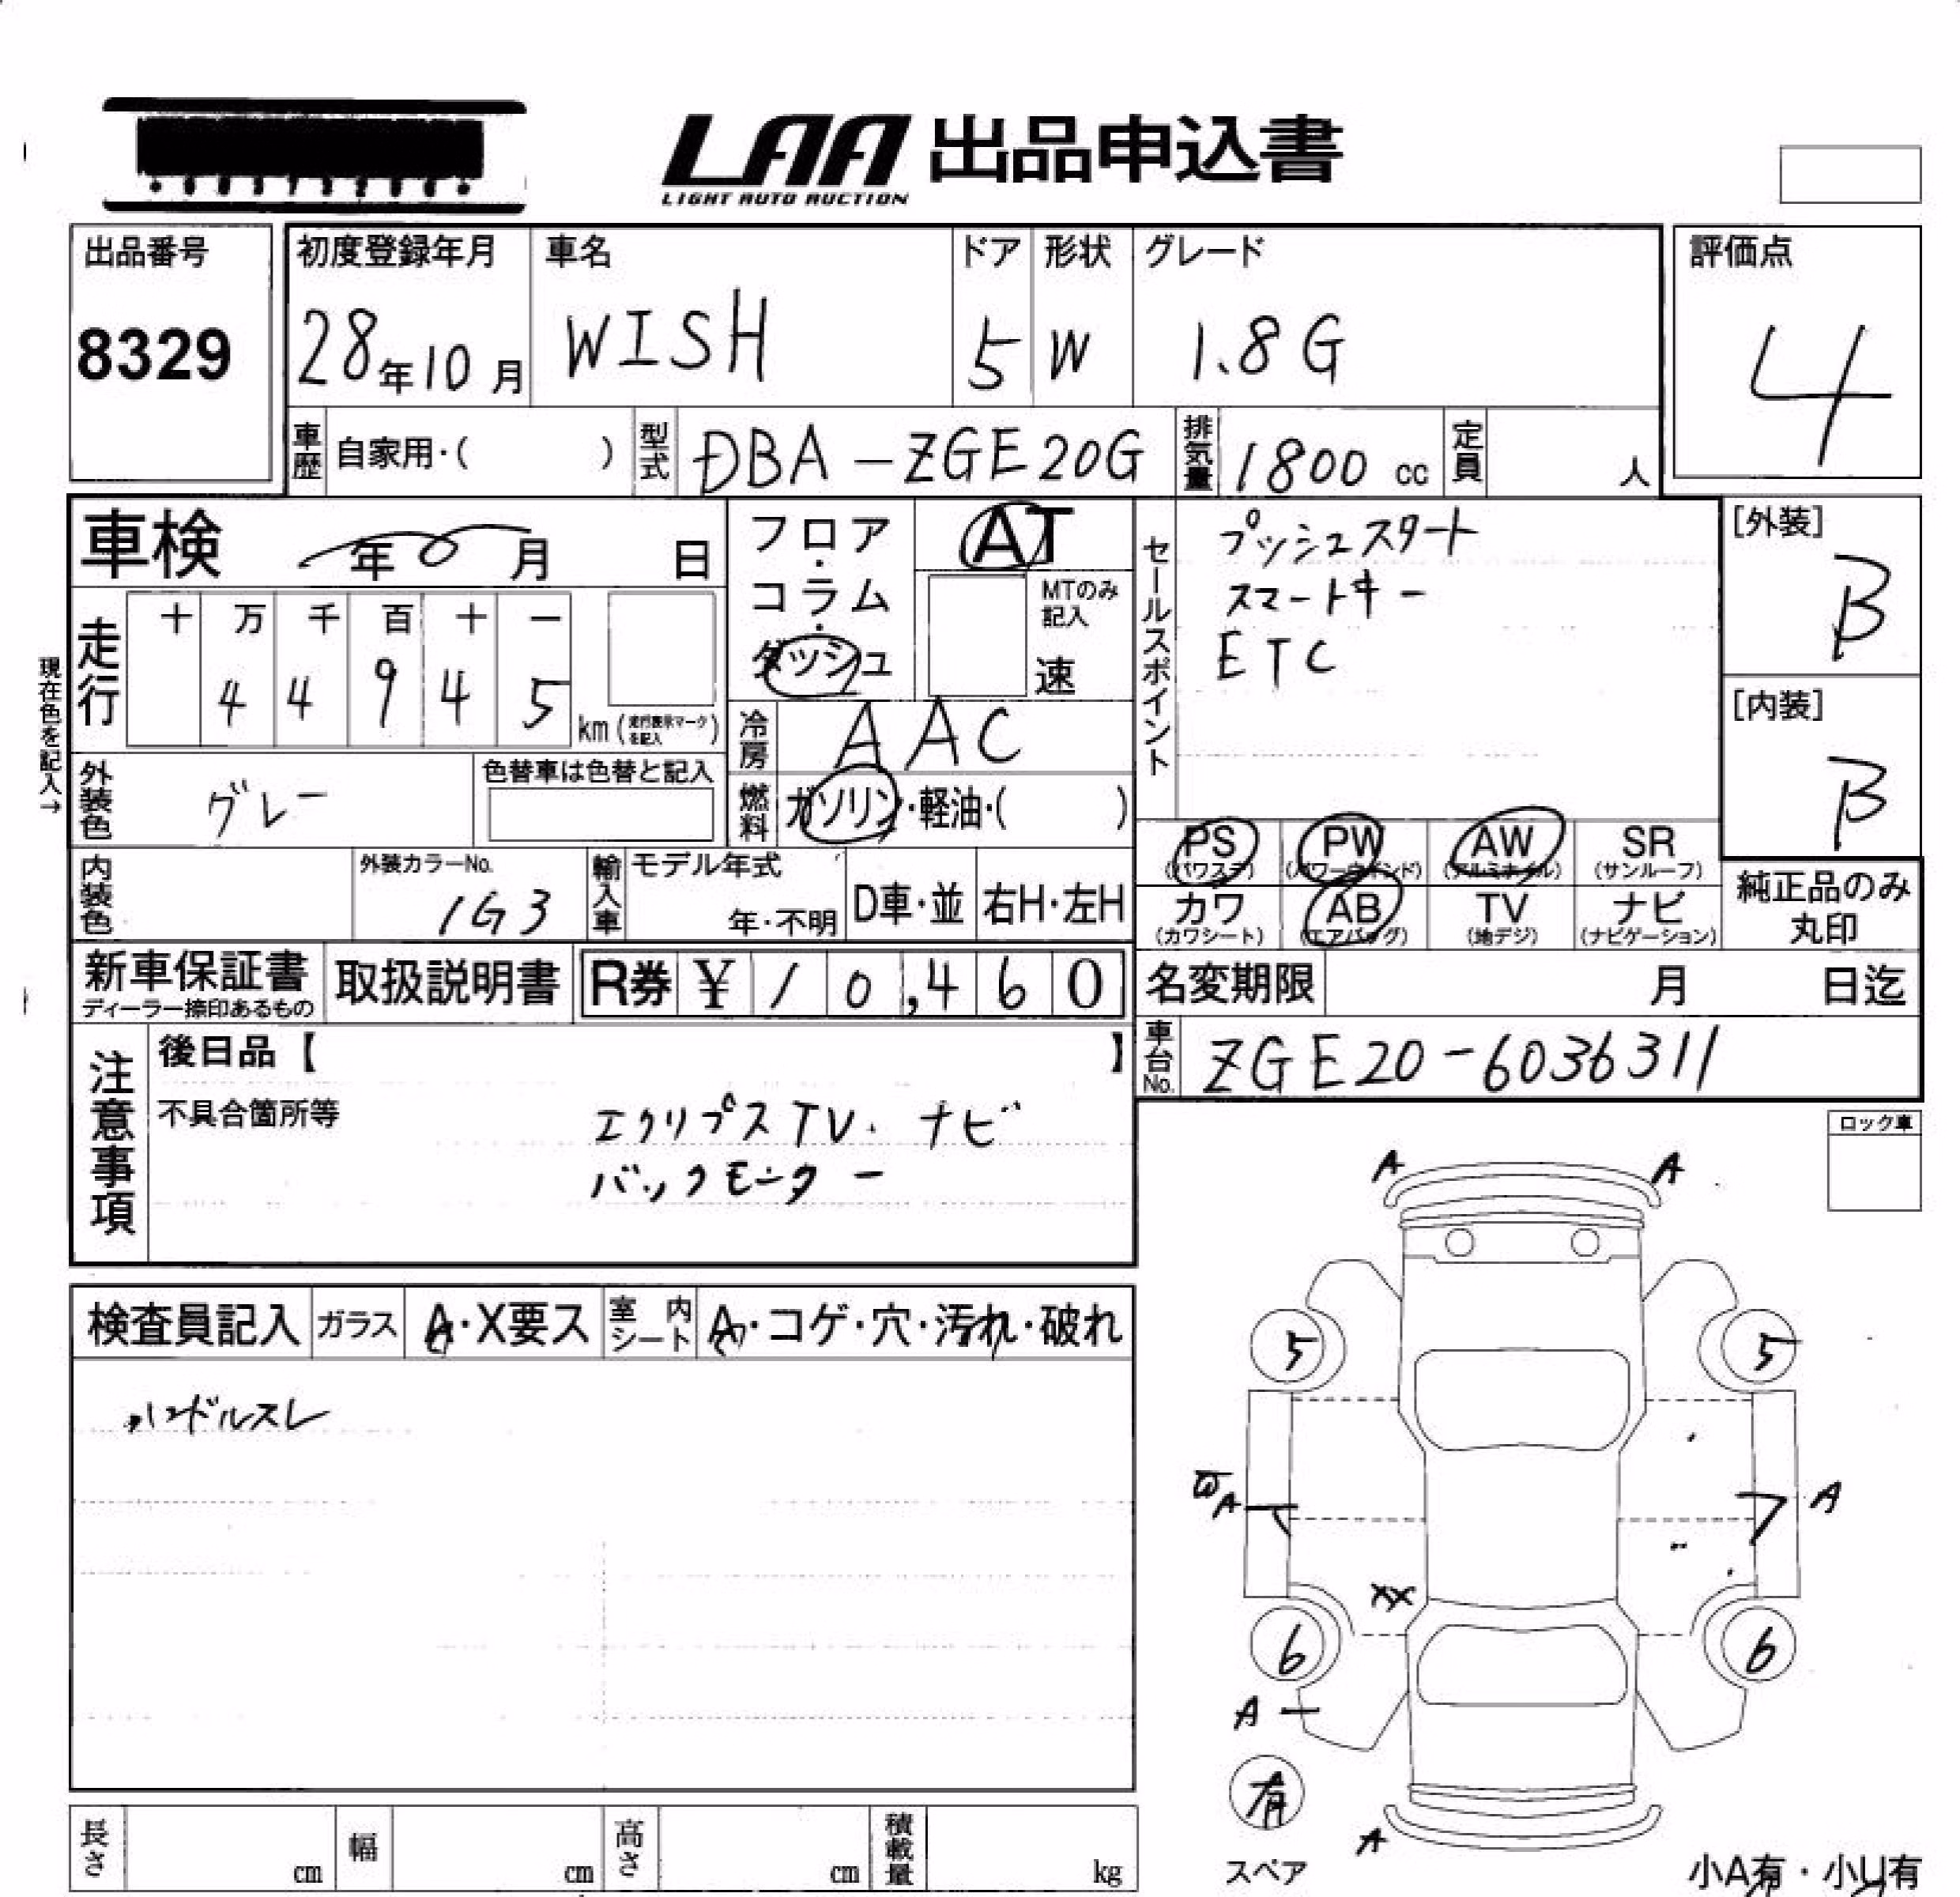 LAA 出品申込書
LIGHT AUTO AUCTION
出品番号 8329
初度登録年月 28年10月
車名 WISH
ドア 5
形状 W
グレード 1.8G
評価点 4
車歴 自家用・( )
型式 DBA-ZGE20G
排気量 1800 cc
定員 人
車検 年 月 日
フロア・コラム・ダッシュ
AT
MTのみ記入 速
セールスポイント
プッシュスタート
スマートキー
ETC
[外装] B
[内装] B
現在色を記入→
走行 十 万 千 百 十 一
4 4 9 4 5 km (走行表示マークを記入)
冷房 AAC
外装色 グレー
色替車は色替と記入
燃料 ガソリン・軽油・( )
PS (パワステ) PW (パワーウインド) AW (アルミホイル) SR (サンルーフ)
カワ (カワシート) AB (エアバッグ) TV (地デジ) ナビ (ナビゲーション)
純正品のみ丸印
内装色
外装カラーNo. 1G3
輸入車 モデル年式 年・不明 D車・並 右H・左H
新車保証書 ディーラー捺印あるもの
取扱説明書
R券 ¥10,460
名変期限 月 日迄
車台No. ZGE20-6036311
注意事項
後日品【 】
不具合箇所等
エクリプスTV・ナビ
バックモニター
ロック車
A A
検査員記入 ガラス A・X要ス 室内シート A・コゲ・穴・汚れ・破れ
ハンドルスレ
5 5
A A
XX
6 6
A
有
スペア
A
長さ cm 幅 cm 高さ cm 積載量 kg
小A有・小U有